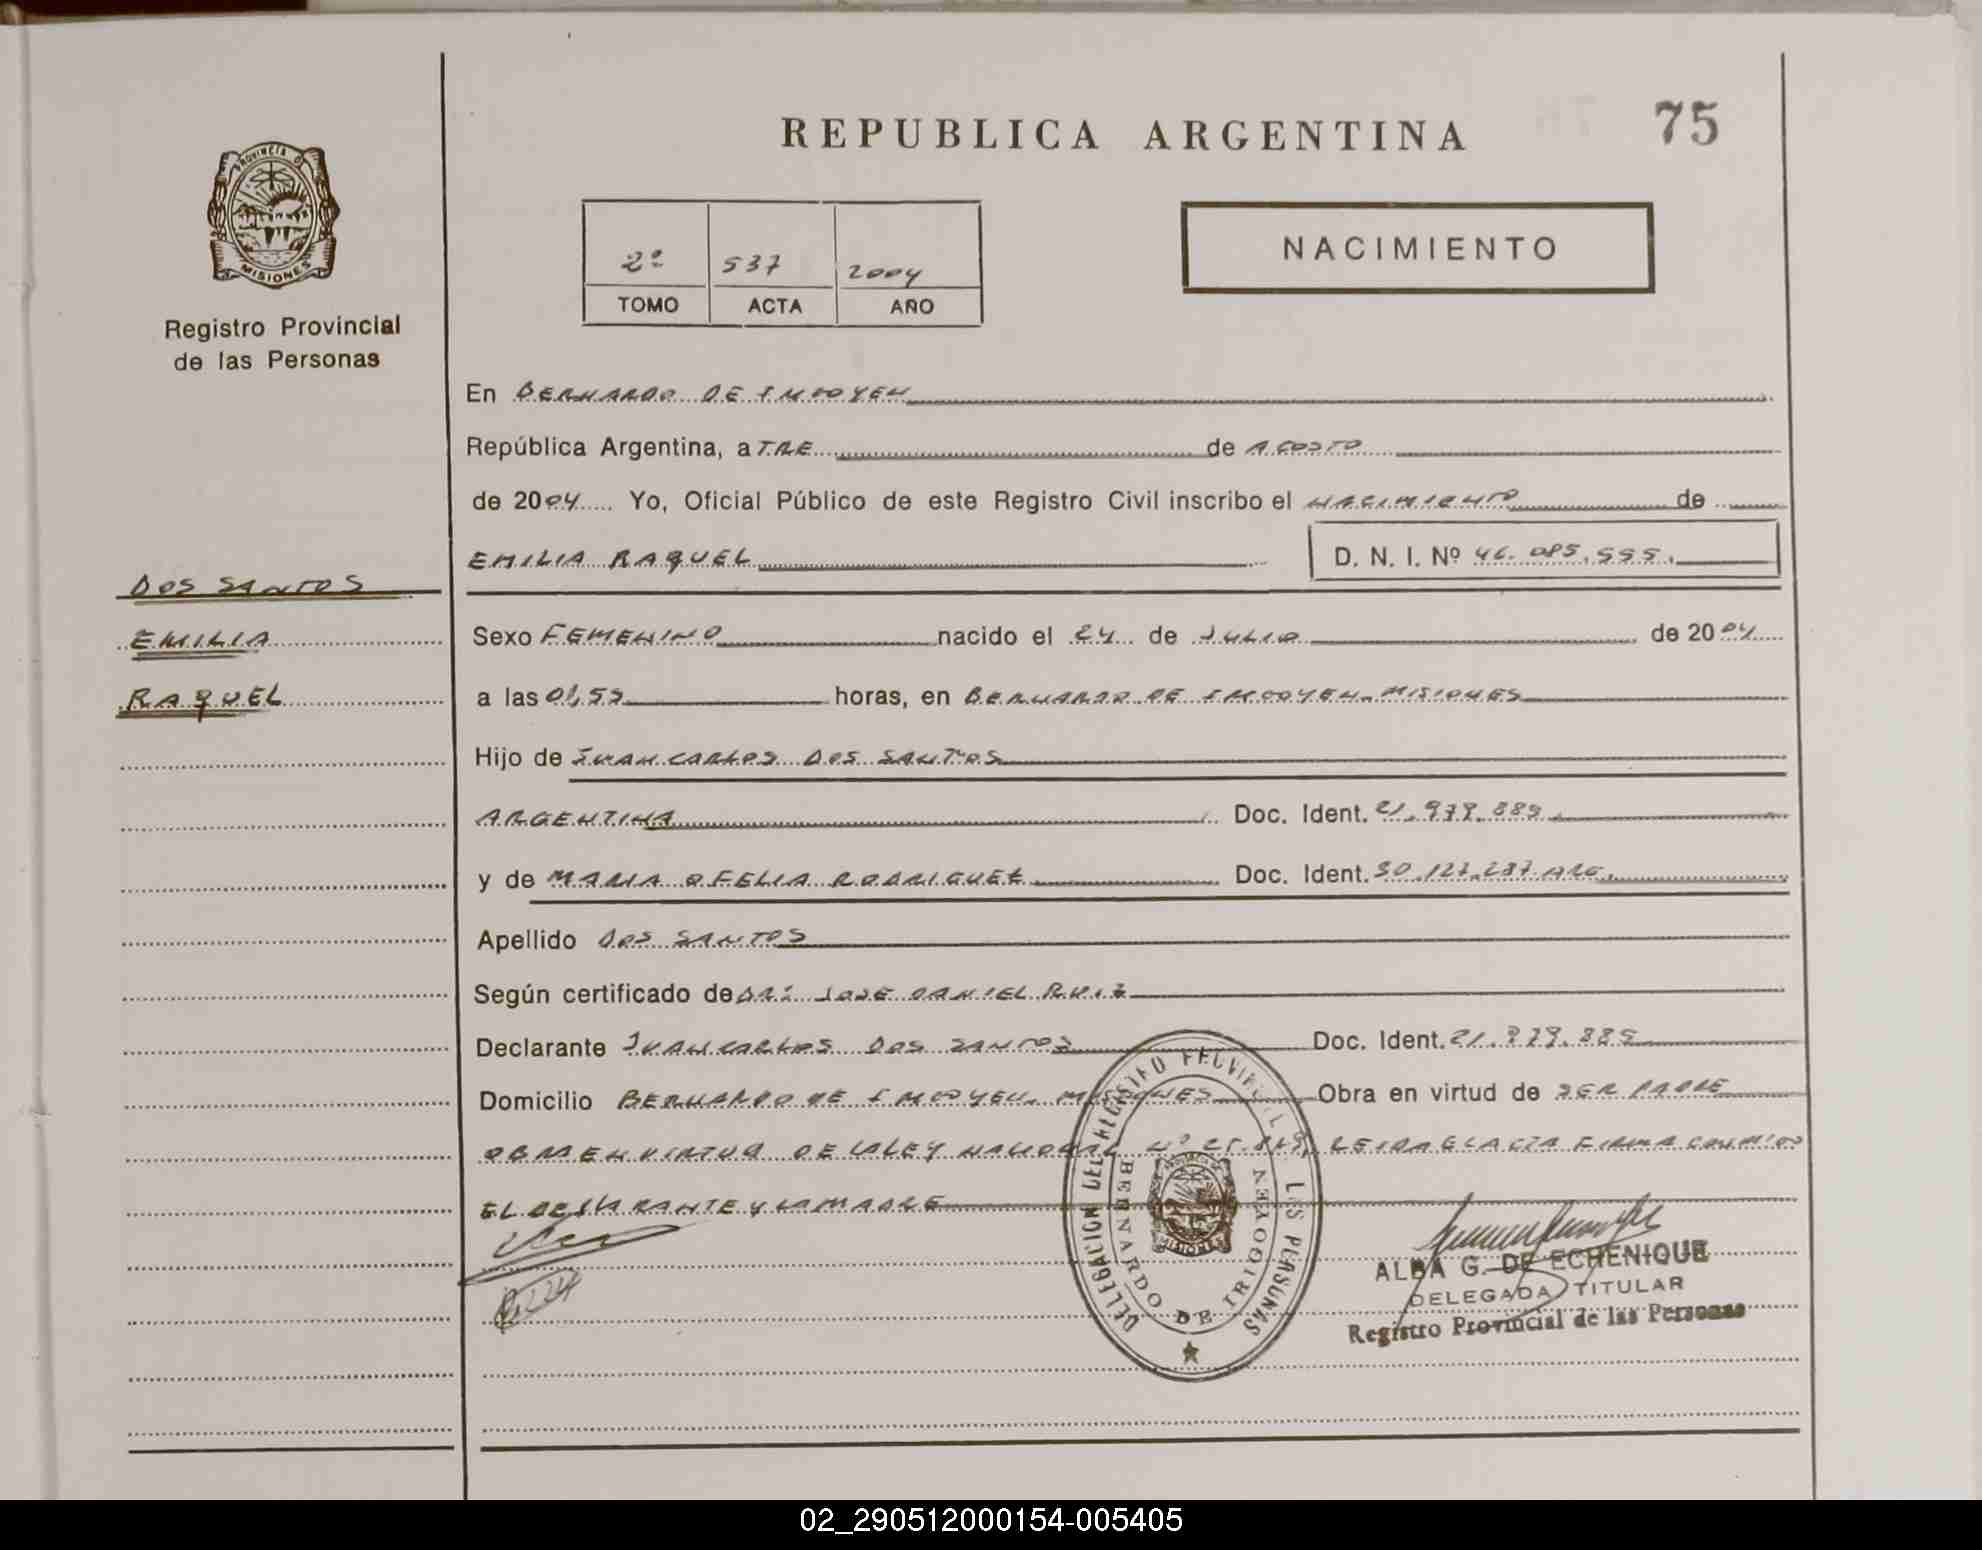 REPUBLICA ARGENTINA
75
PROVINCIA D
MISIONES
Registro Provincial
de las Personas
2º 537 2004
TOMO ACTA AÑO
NACIMIENTO
En BERNARDO DE IRIGOYEN
República Argentina, a TRE de AGOSTO
de 2004 Yo, Oficial Público de este Registro Civil inscribo el NACIMIENTO de
EMILIA RAQUEL D. N. I. Nº 46.085.555.
DOS SANTOS
EMILIA
RAQUEL
Sexo FEMENINO nacido el 24 de JULIO de 2004
a las 01,55 horas, en BERNARDO DE IRIGOYEN. MISIONES
Hijo de JUAN CARLOS DOS SANTOS
ARGENTINA Doc. Ident. 21.979.885
y de MARIA OFELIA RODRIGUEZ Doc. Ident. 30.127.287 ARG.
Apellido DOS SANTOS
Según certificado de DR: JOSE DANIEL RUIZ
Declarante JUAN CARLOS DOS SANTOS Doc. Ident. 21.979.885
Domicilio BERNARDO DE IRIGOYEN. MISIONES Obra en virtud de SER PADRE
OBRA EN VIRTUD DE LA LEY NACIONAL Nº LEIDA EL ACTA FIRMA CONMIGO
EL DECLARANTE Y LA MADRE
DELEGACION DEL REGISTRO PROVINCIAL LAS PERSONAS
BERNARDO DE IRIGOYEN
MISIONES
ALBA G. DE ECHENIQUE
DELEGADA TITULAR
Registro Provincial de las Personas
02_290512000154-005405